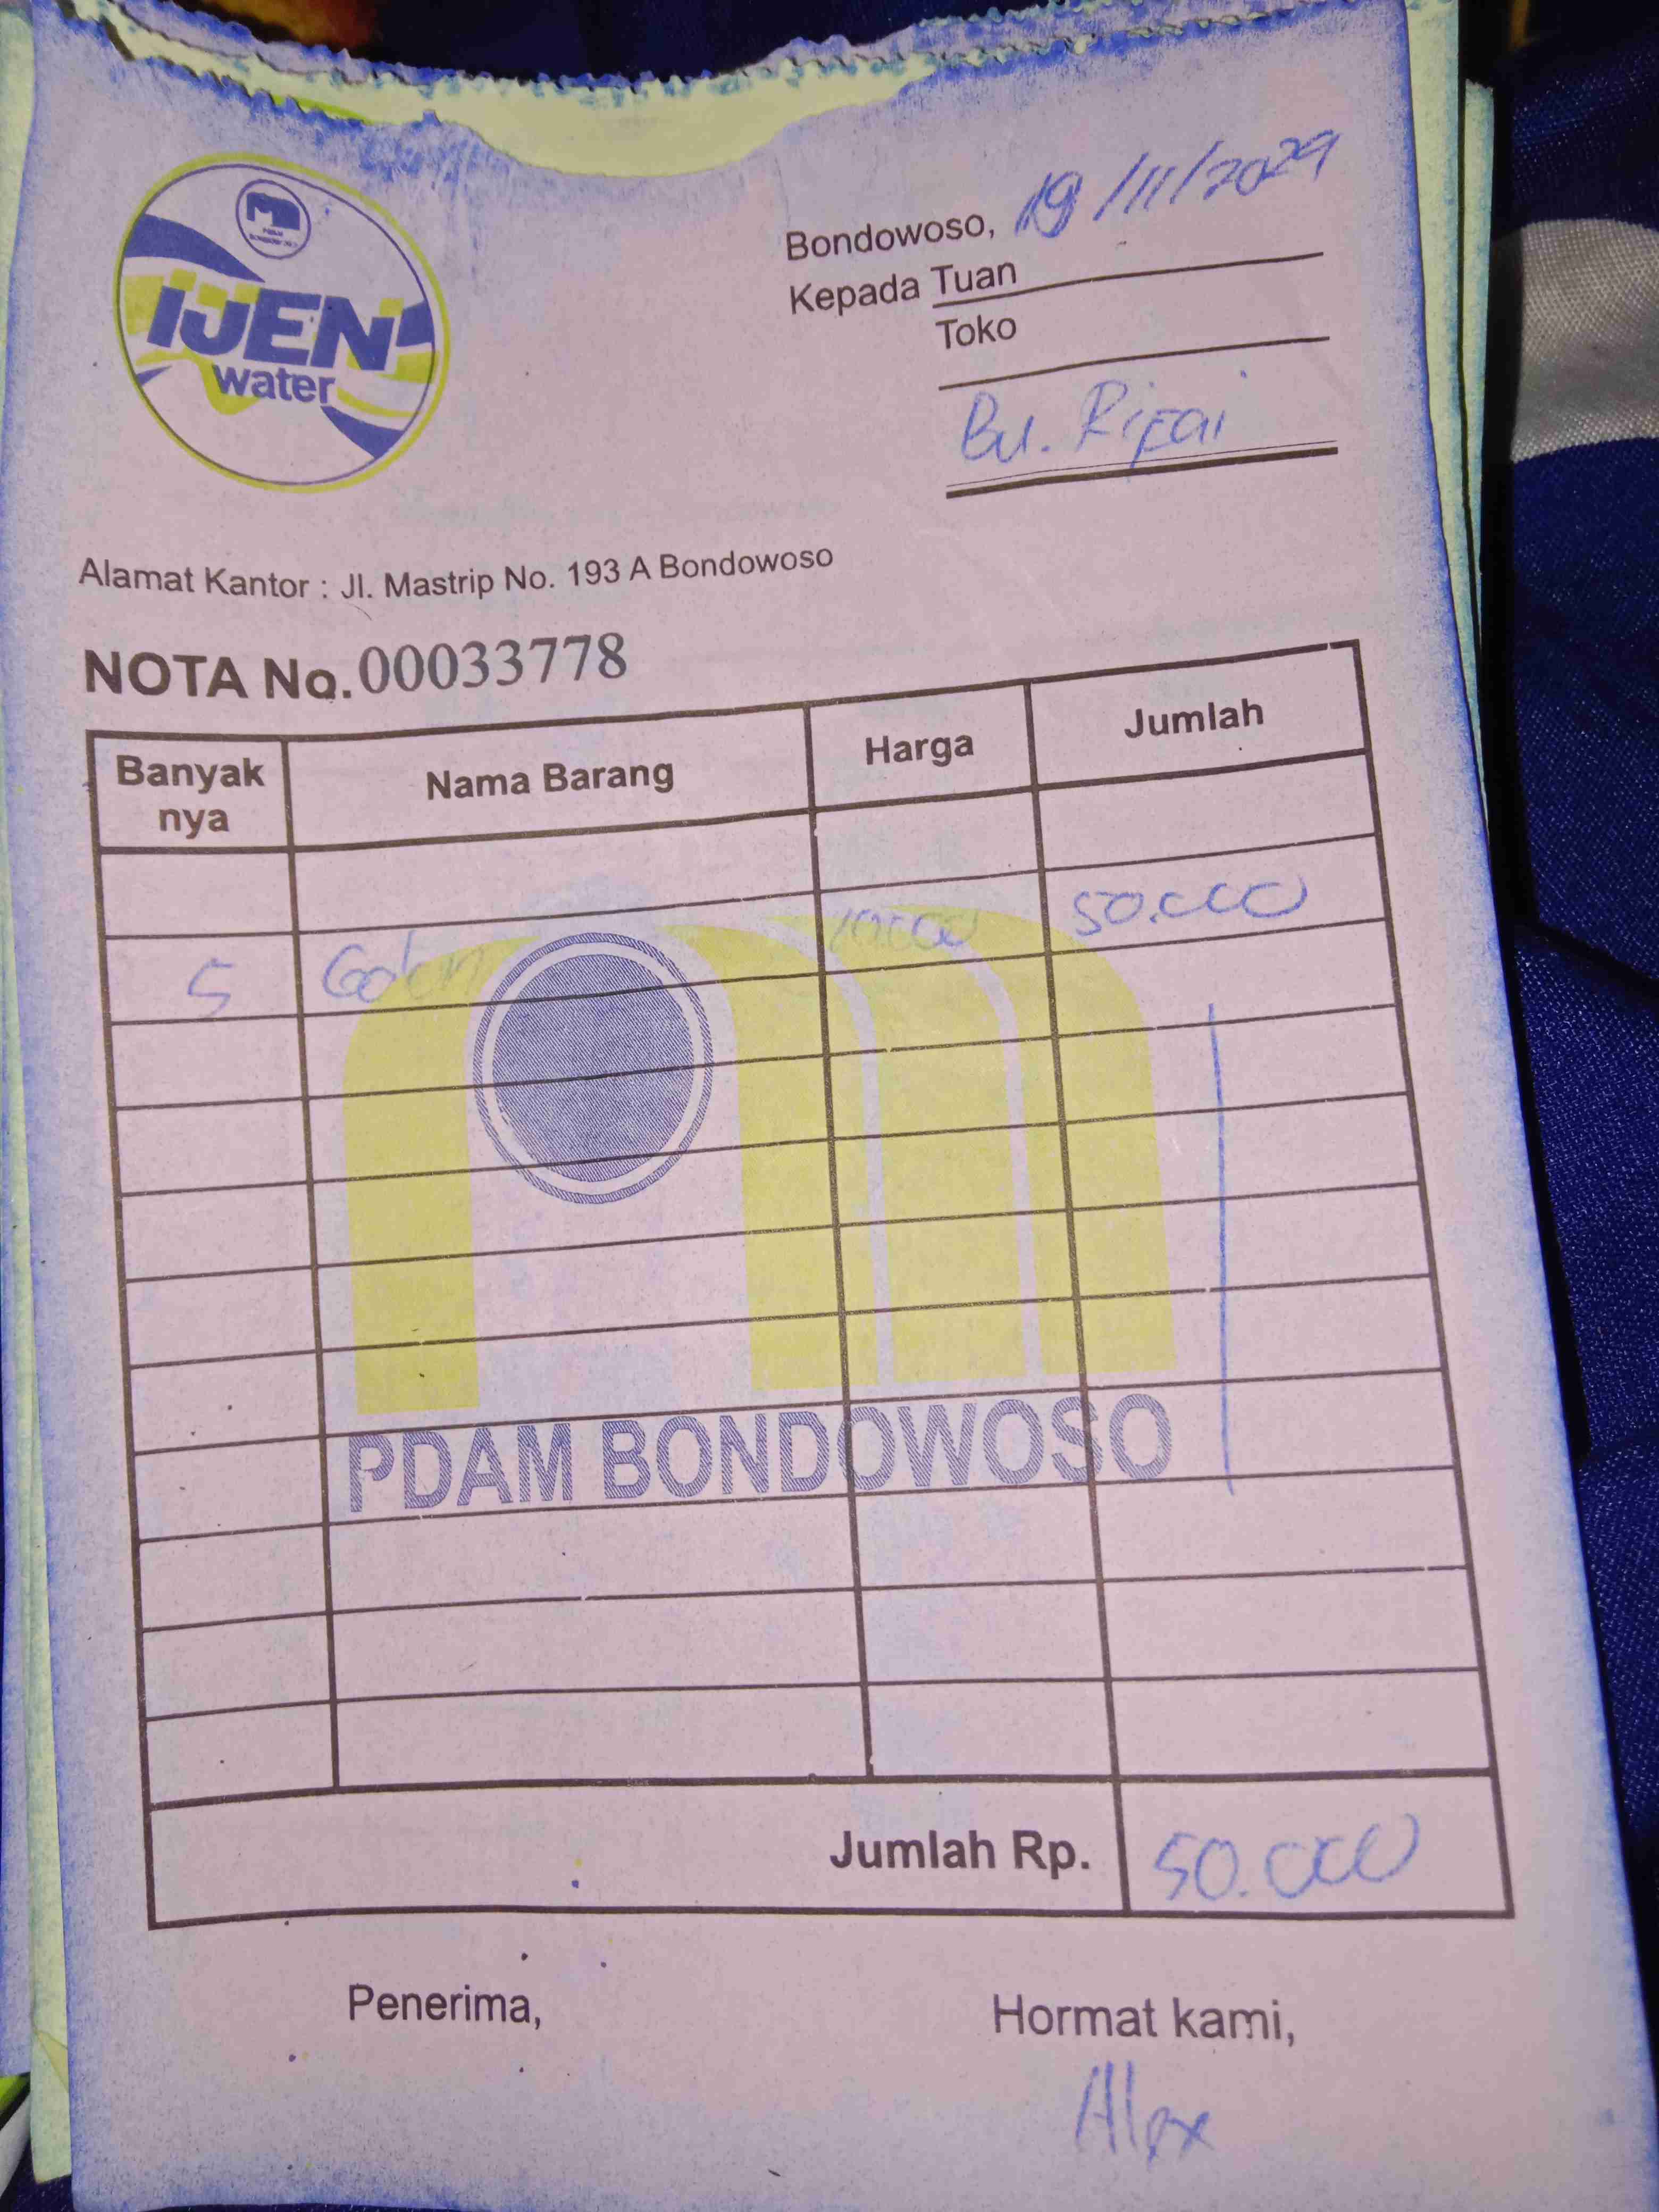 PDAM
BONDOWOSO
IJEN
water
Bondowoso, 19/11/2029
Kepada Tuan
Toko
Bu. Rifai
Alamat Kantor : Jl. Mastrip No. 193 A Bondowoso
NOTA No. 00033778
Banyak nya Nama Barang Harga Jumlah
5 Galon 10.000 50.000
PDAM BONDOWOSO
Jumlah Rp. 50.000
Penerima, Hormat kami,
Alex